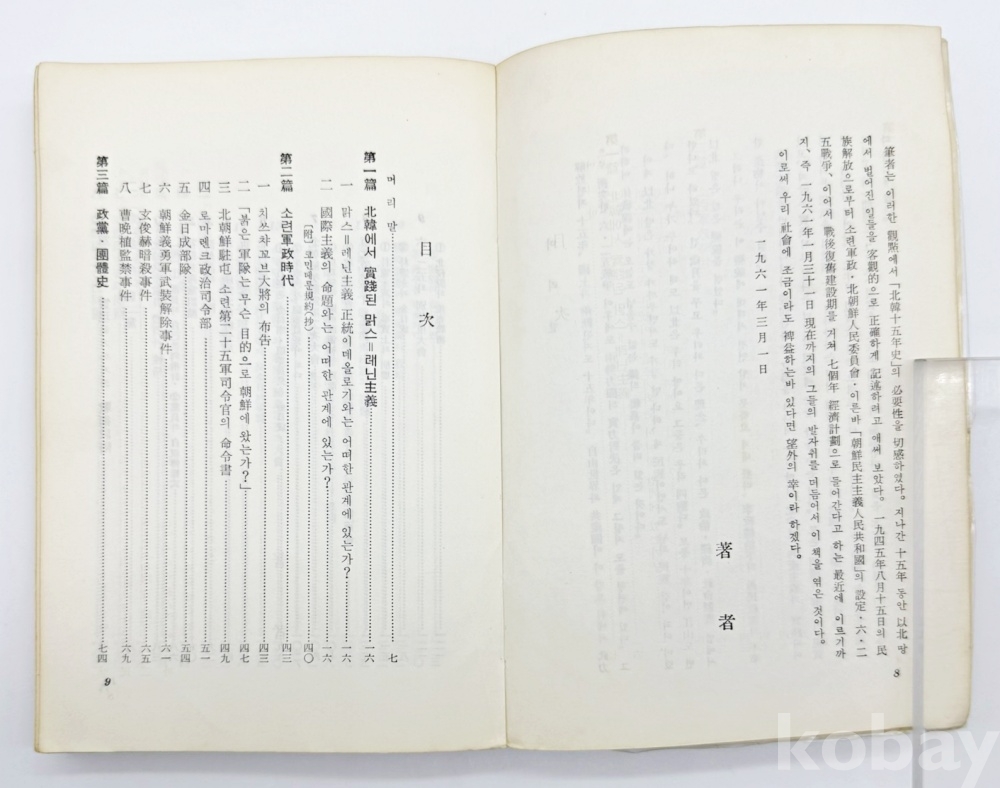 筆者는 이러한 觀點에서 「北韓十五年史」의 必要性을 切感하였다. 지나간 十五年 동안 以北 땅
에서 벌어진 일들을 客觀的으로 正確하게 記述하려고 애써 보았다. 一九四五年八月十五日의 民
族解放으로부터 소련軍政·北朝鮮人民委員會·이른바 「朝鮮民主主義人民共和國」의 設定·六·二
五戰爭, 이어서 戰後復舊建設期를 거쳐 七個年 經濟計劃으로 들어간다고 하는 最近에 이르기까
지, 즉 一九六一年一月三十一日 現在까지의 그들의 발자취를 더듬어서 이 책을 엮은 것이다.
이로써 우리 社會에 조금이라도 裨益하는바 있다면 望外의 幸이라 하겠다.
一九六一年三月一日
著者
8
目次
머리말 七
第一篇 北韓에서 實踐된 맑스=레닌主義 一六
一 맑스=레닌主義 正統이데올로기와는 어떠한 관계에 있는가? 一六
二 國際主義의 命題와는 어떠한 관계에 있는가? 一六
[附] 코민테른規約(抄) 四〇
第二篇 소련軍政時代 四三
一 치쓰챠꼬브大將의 布告 四三
二 「붉은 軍隊는 무슨 目的으로 朝鮮에 왔는가?」 四七
三 北朝鮮駐屯 소련第二十五軍司令官의 命令書 四九
四 로마렌크政治司令部 五一
五 金日成部隊 五四
六 朝鮮義勇軍武裝解除事件 六一
七 玄俊赫暗殺事件 六五
八 曹晩植監禁事件 六九
第三篇 政黨·團體史 七四
9
kobay